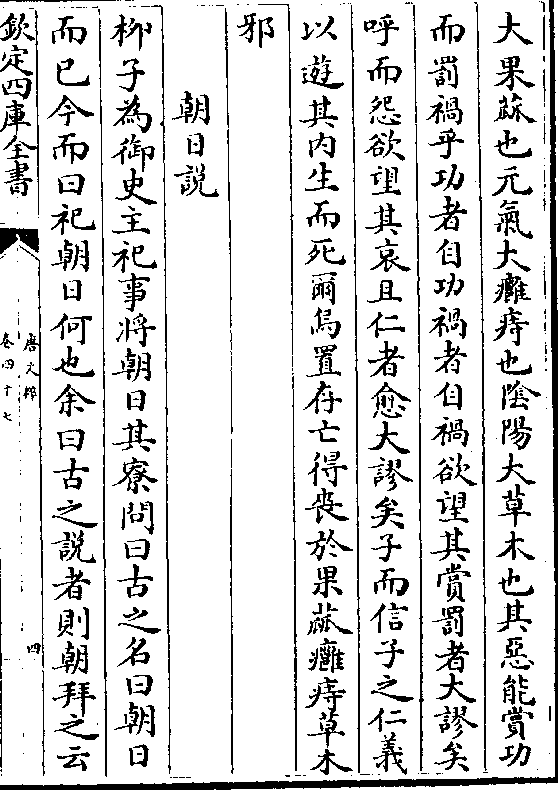 大果蓏也元氣大癰痔也隂陽大草木也其惡能賞功
而罰禍乎功者自功禍者自禍欲望其賞罰者大謬矣
呼而怨欲望其哀且仁者愈大謬矣子而信子之仁義
以遊其内生而死爾烏置存亡得喪於果蓏癰痔草木
邪
朝日説
栁子為御史主祀事将朝日其寮問曰古之名曰朝日
而已今而曰祀朝日何也余曰古之説者則朝拜之云
欽定四庫全書
唐文粹
卷四十七
四